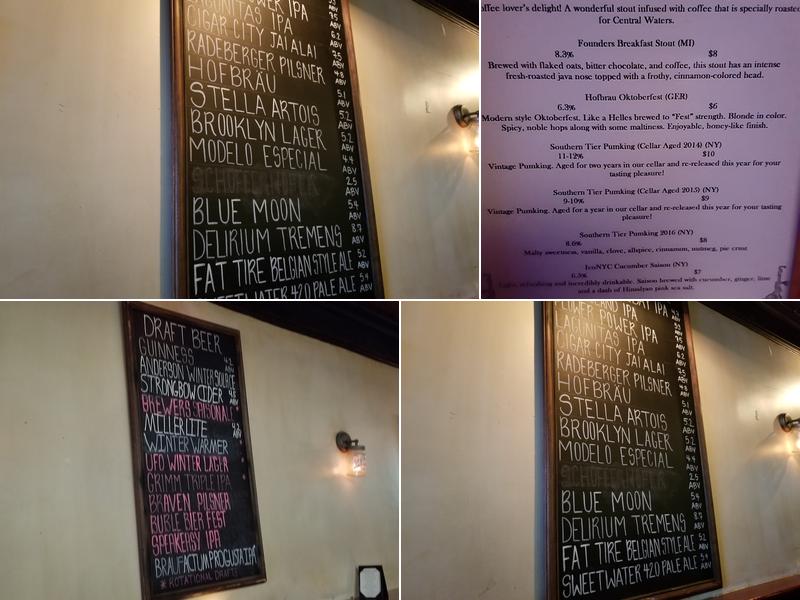 POWER IPA
LAGUNITAS IPA
CIGAR CITY JAI ALAI
RADEBERGER PILSNER
HOFBRÄU
STELLA ARTOIS
BROOKLYN LAGER
MODELO ESPECIAL
SCHÖFERHOFER
BLUE MOON
DELIRIUM TREMENS
FAT TIRE BELGIAN STYLE ALE
SWEETWATER 420 PALE ALE
5.5
ABV
7.5
ABV
6.2
ABV
7.5
ABV
4.8
ABV
5.1
ABV
5.2
ABV
5.2
ABV
4.4
ABV
2.5
ABV
5.4
ABV
8.7
ABV
5.2
ABV
5.4
ABV
coffee lover's delight! A wonderful stout infused with coffee that is specially roasted
for Central Waters.
Founders Breakfast Stout (MI)
8.3% $8
Brewed with flaked oats, bitter chocolate, and coffee, this stout has an intense
fresh-roasted java nose topped with a frothy, cinnamon-colored head.
Hofbrau Oktoberfest (GER)
6.3% $6
Modern style Oktoberfest. Like a Helles brewed to "Fest" strength. Blonde in color.
Spicy, noble hops along with some maltiness. Enjoyable, honey-like finish.
Southern Tier Pumking (Cellar Aged 2014) (NY)
11-12% $10
Vintage Pumking. Aged for two years in our cellar and re-released this year for your
tasting pleasure!
Southern Tier Pumking (Cellar Aged 2015) (NY)
9-10% $9
Vintage Pumking. Aged for a year in our cellar and re-released this year for your tasting
pleasure!
Southern Tier Pumking 2016 (NY)
8.6% $8
Malty sweetness, vanilla, clove, allspice, cinnamon, nutmeg, pie crust
IconNYC Cucumber Saison (NY)
6.5% $7
Light, refreshing and incredibly drinkable. Saison brewed with cucumber, ginger, lime
and a dash of Himalyan pink sea salt.
DRAFT BEER
GUINNESS 4.2
ABV
ANDERSON WINTER SOLSTICE
STRONGBOW CIDER 4.5
ABV
BREWERS SAISONALE
MILLER LITE 4.2
ABV
WINTER WARMER
UFO WINTER LAGER
GRIMM TRIPLE IPA
BRAVEN PILSNER
BURLE BIER FEST
SPEAKEASY IPA
BRAUFACTUM PROGUSTA IPA
* ROTATIONAL DRAFTS
POWER IPA
LAGUNITAS IPA
CIGAR CITY JAI ALAI
RADEBERGER PILSNER
HOFBRÄU
STELLA ARTOIS
BROOKLYN LAGER
MODELO ESPECIAL
SCHÖFERHOFER
BLUE MOON
DELIRIUM TREMENS
FAT TIRE BELGIAN STYLE ALE
SWEETWATER 420 PALE ALE
5.5
ABV
6.2
ABV
7.5
ABV
4.8
ABV
5.1
ABV
5.2
ABV
5.2
ABV
4.4
ABV
2.5
ABV
5.4
ABV
8.7
ABV
5.2
ABV
5.4
ABV